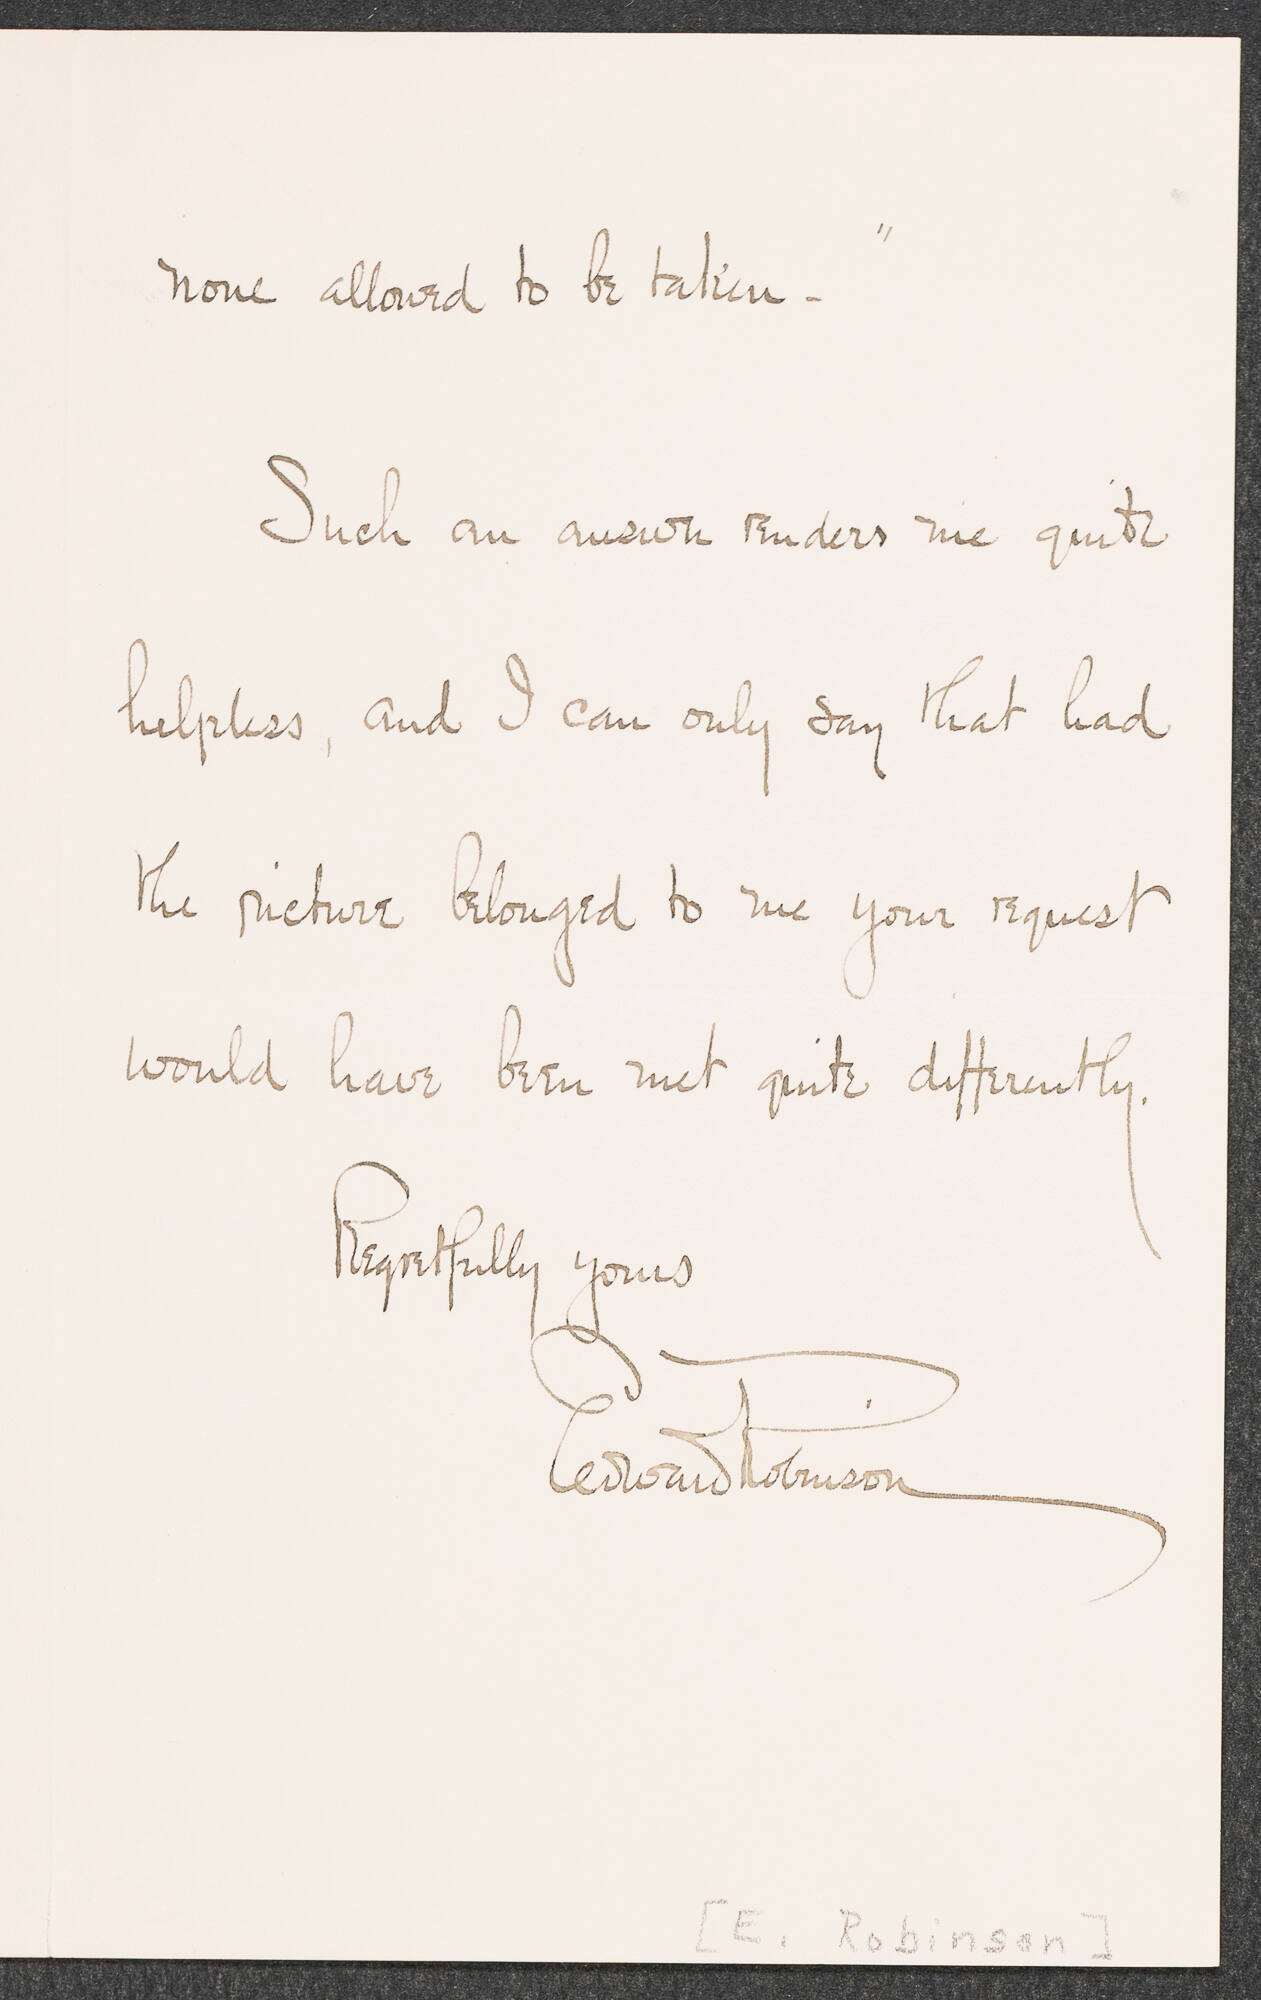 none allowed to be taken - "
Such an answer renders me quite
helpless, and I can only say that had
the picture belonged to me your request
would have been met quite differently.
Regretfully yours
Edward Robinson
[E. Robinson]